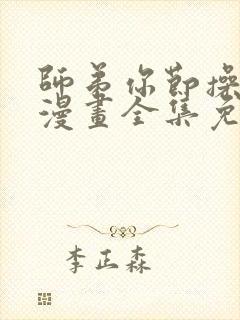 師弟你節操
漫畫全集免
李正森